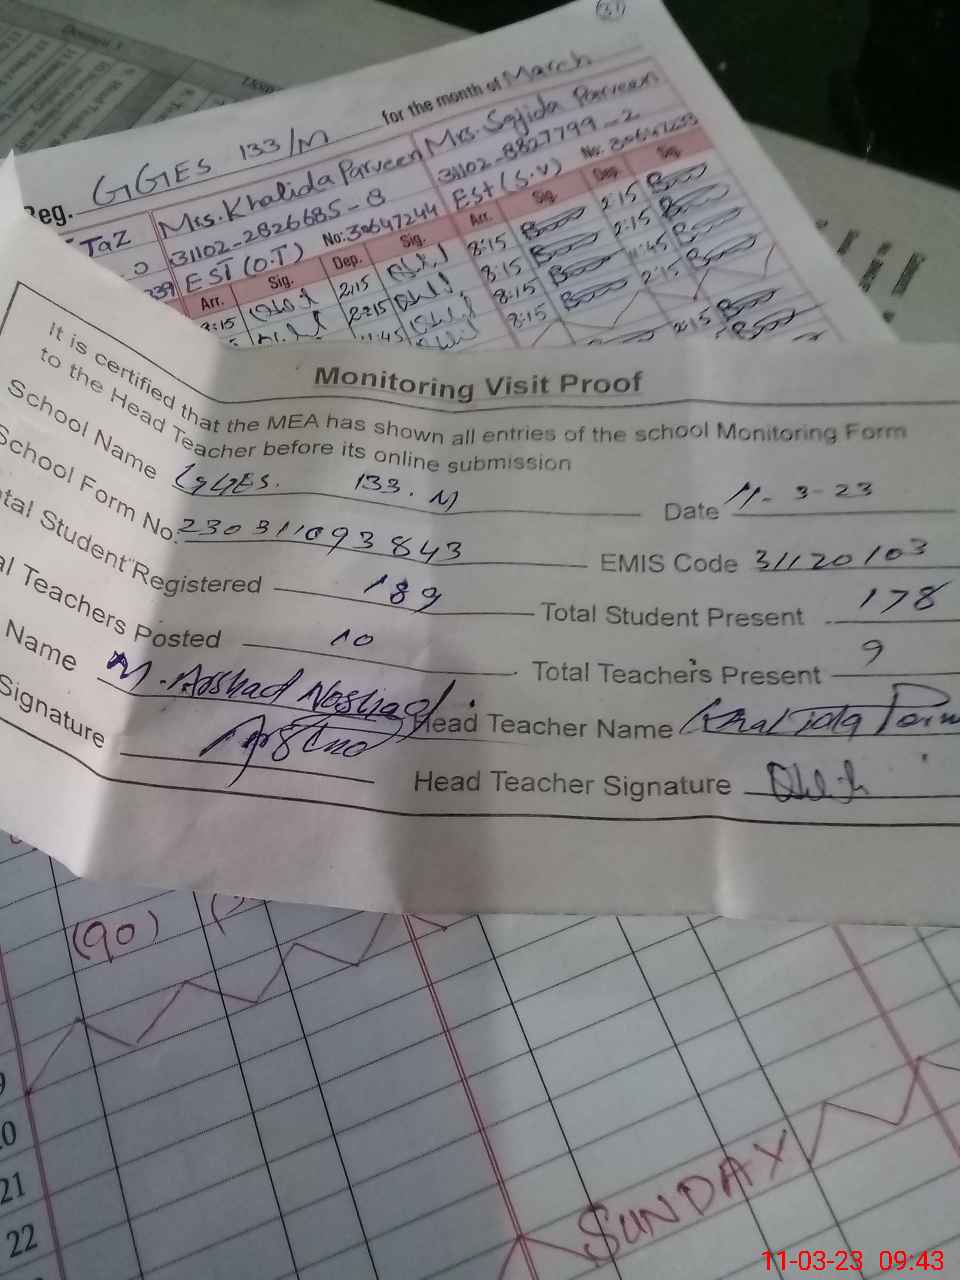 31
Reg. GGES 133/M for the month of March
TaZ Mrs. Khalida Parveen Mrs. Sajida Parveen
31102-2826685-8 31102-8827799-2
EST (O.T) No: 30647244 Est (S.V) No: 30647233
Arr. Sig. Dep. Sig. Arr. Sig. Dep. Sig.
8:15 2:15 8:15 2:15
2:15 8:15 2:15
11:45 8:15 11:45
8:15 2:15
2:15
Monitoring Visit Proof
It is certified that the MEA has shown all entries of the school Monitoring Form
to the Head Teacher before its online submission
School Name GGES. 133.M Date 11-3-23
School Form No. 230311093843 EMIS Code 31120103
tal Student Registered 189 Total Student Present 178
al Teachers Posted 10 Total Teachers Present 9
Name M. Arshad Head Teacher Name Khalida
Signature Head Teacher Signature
(90)
9
20
21
22 SUNDAY
11-03-23 09:43